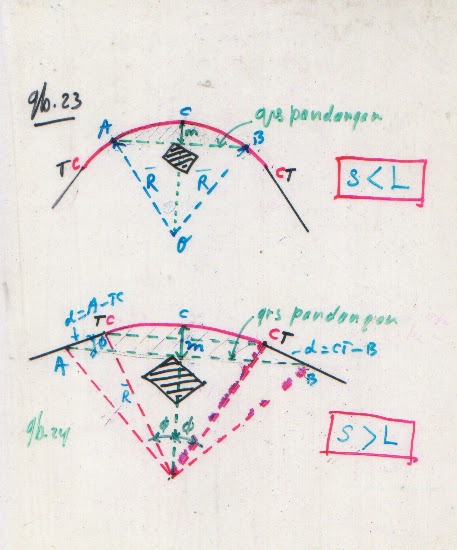 gb.23
C
A
m
grs pandangan
B
TC
CT
R̄
R̄
O
S < L
d=A-TC
TC
C
grs pandangan
CT
d=CT-B
A
m̄
B
R̄
gb.24
ϕ
ϕ
S > L